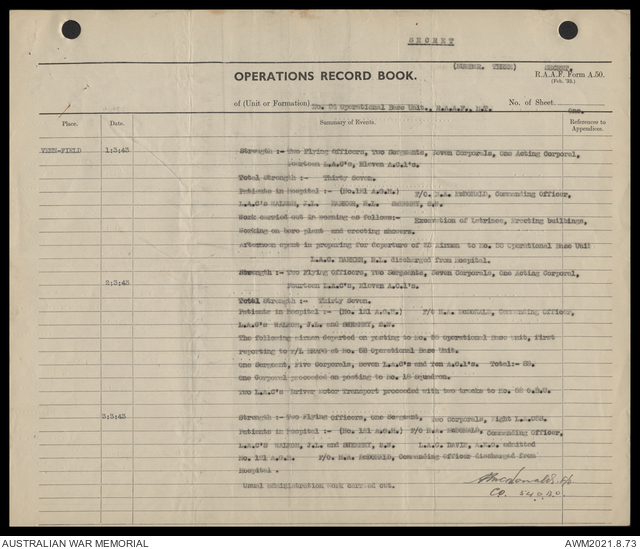 SECRET
(NUMBER. THREE) SECRET.
OPERATIONS RECORD BOOK.
R.A.A.F. Form A.50.
(Feb. '38.)
of (Unit or Formation) No. 54 Operational Base Unit., R.A.A.F., N.T. No. of Sheet One.
Place. Date. Summary of Events. References to Appendices.
VENN-FIELD 1:3:43 Strength :- Two Flying Officers, Two Sergeants, Seven Corporals, One Acting Corporal,
Fourteen L.A.C's, Eleven A.C.1's.
Total Strength :- Thirty Seven.
Patients in Hospital :- (No.121 A.G.H.) F/O. McDONALD, Commanding Officer,
L.A.C's WALKER, J.L.
Work carried out in morning as follows:- Excavation of Latrines, Erecting buildings,
Working on bore plant and erecting showers.
Afternoon spent in preparing for departure of Airmen to No. Operational Base Unit
L.A.C. discharged from Hospital.
Strength :- Two Flying Officers, Two Sergeants, Seven Corporals, One Acting Corporal,
2:3:43 Fourteen L.A.C's, Eleven A.C.1's.
Total Strength :- Thirty Seven.
Patients in Hospital :- (No. 121 A.G.H.) F/O McDONALD, Commanding Officer,
L.A.C's WALKER, J.L. and
The following airmen departed on posting to No. Operational Base unit, first
reporting to F/L at No. 52 Operational Base Unit.
One Sergeant, Five Corporals, Seven L.A.C's and Ten A.C.1's. Total:- 23.
One Corporal proceeded on posting to No. Squadron.
Two L.A.C's Driver Motor Transport proceeded with two trucks to No. O.B.U.
3:3:43 Strength :- Two Flying Officers, One Sergeant, Two Corporals, Eight L.A.C's.
Patients in Hospital :- (No. 121 A.G.H.) F/O McDONALD, Commanding Officer,
L.A.C'S WALKER, J.L. and L.A.C. DAVIS, admitted
No. 121 A.G.H. F/O. McDONALD, Commanding Officer discharged from
Hospital.
Usual administration work carried out.
McDonald F/O
CO. 54 O.B.U.
AUSTRALIAN WAR MEMORIAL AWM2021.8.73